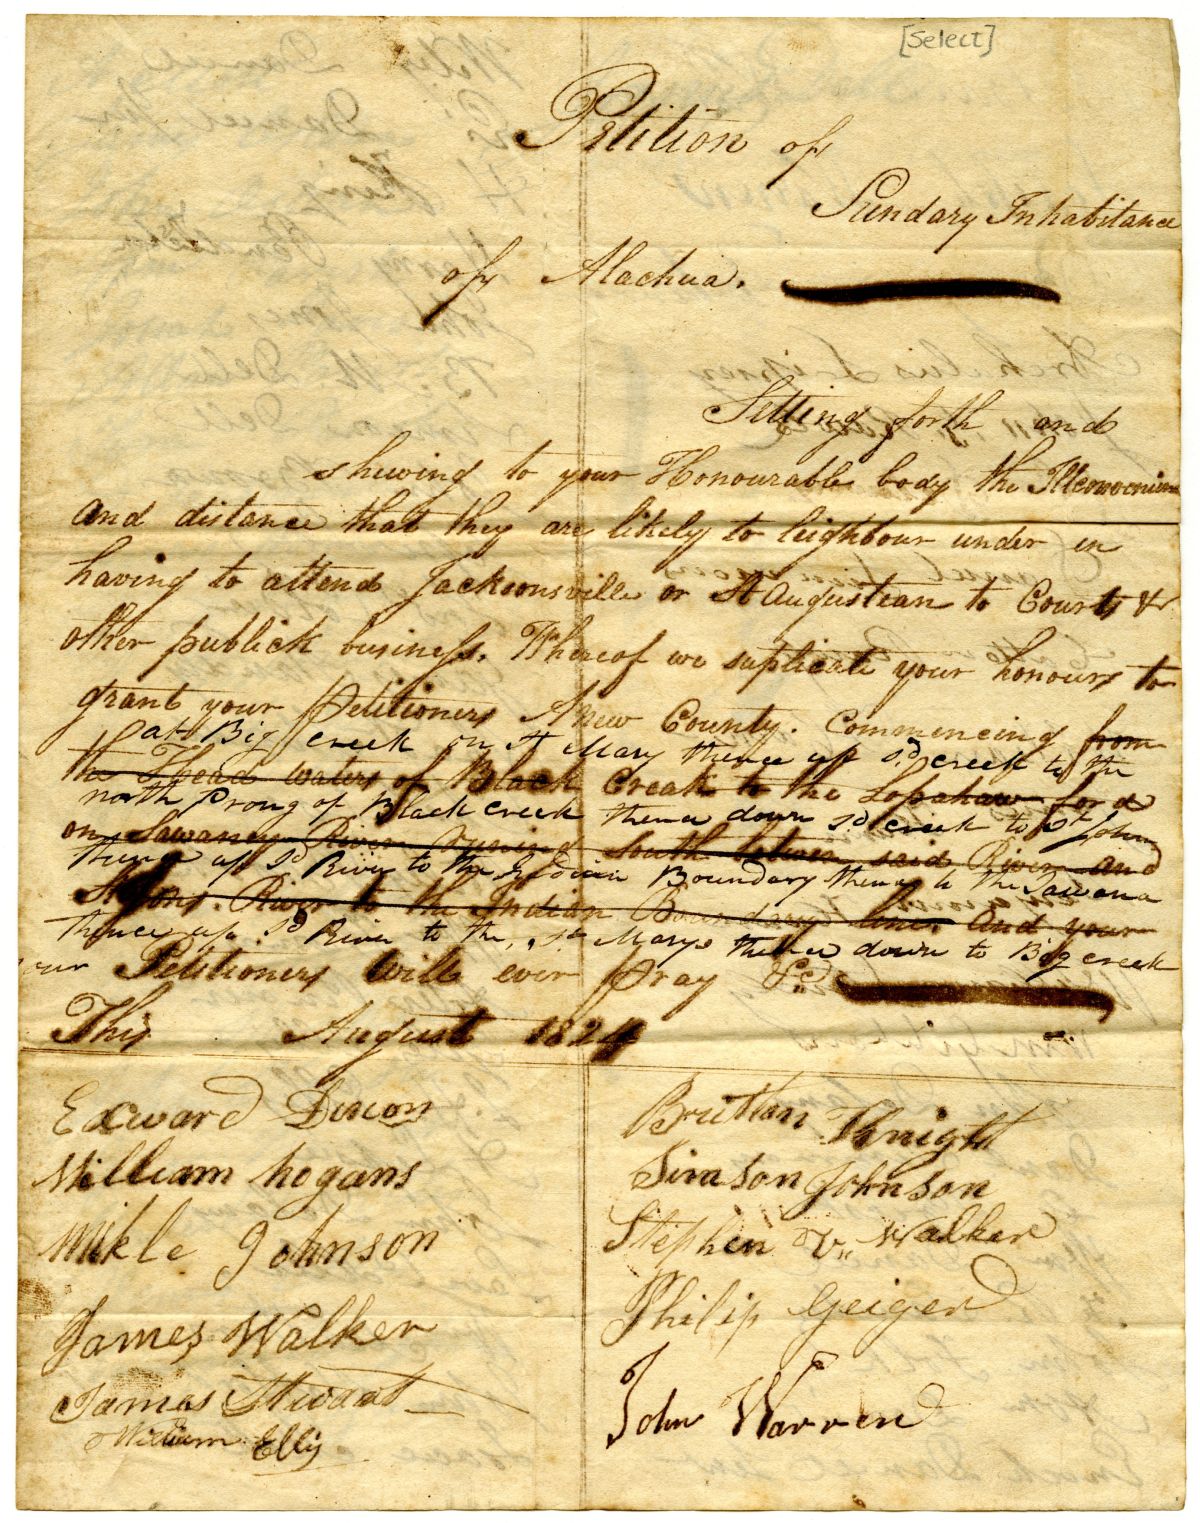 [Select]
Petition of
Sundary Inhabitance
of Alachua.
Setting forth and
shewing to your Honourable body the
and distance that they are likely to leighbour under in
having to attend Jacksonsville or St Augustian to Courts &
other publick business. Thereof we suplicate your honours to
grant your Petitioners A new County. Commencing from
at Big creek on St Mary thence up sd creek to the
the head waters of Black Creak to the Lopahaw ford
north Prong of Black creek thence down sd creek to St John
on Sawaney River runing South between said River and
thence up sd River to the Indian Boundary thence to the Sawana
St Johns River to the Indian Boundary line and your
thence up sd River to the St Marys thence down to Big creek
our Petitioners will ever pray &c
This August 1824
Edward Dixon
William hogans
Mikle Johnson
James Walker
James Stwart
William Ellis
Brittan Knight
Simson Johnson
Stephen V. Walker
Philip Geiger
John Warren